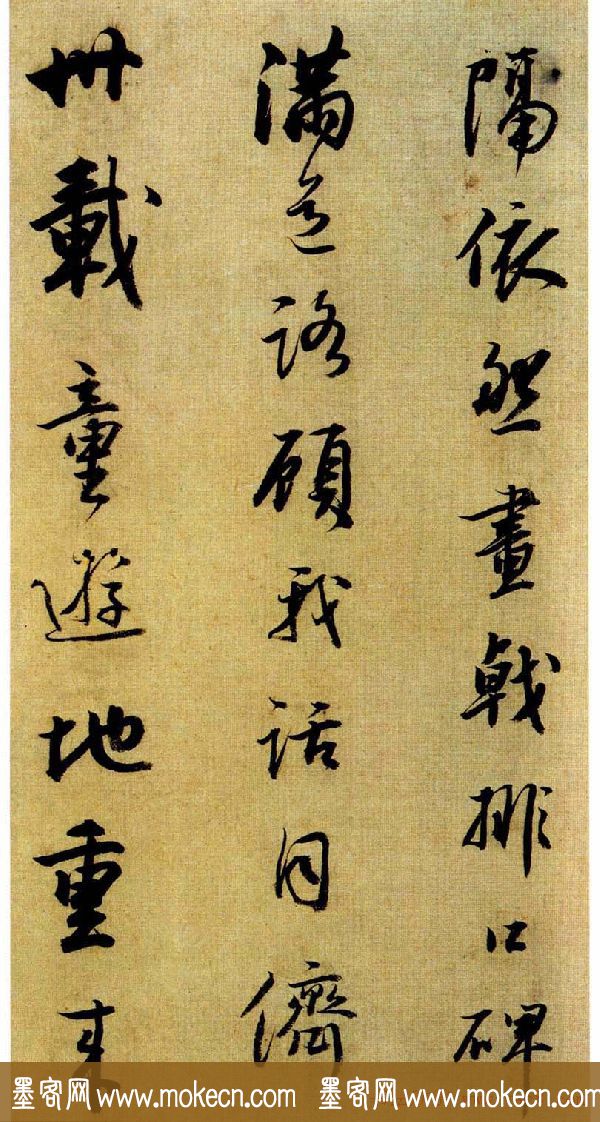 隔依然畫戟排口碑
滿道路顧我話同儕
卅載童遊地重來
墨客网 www.mokecn.com 墨客网 www.mokecn.com